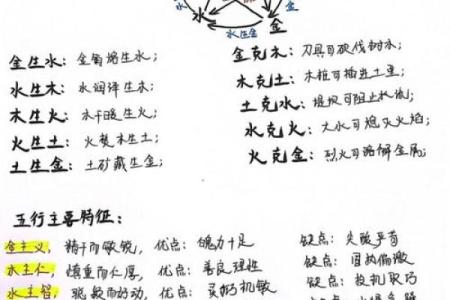 水 金
水生金
金生水：金需熔生水；
水生木：水润泽生木；
木生火：木干暖生火；
火生土：火焚木生土；
土生金：土矿藏生金；
金克木：刀具可砍伐树木；
木克土：木桩可插进土里；
土克水：堤坝可阻止水流；
水克火：大水可熄灭火焰；
火克金：烈火可熔解金属；
五行主要特征：
金主义，精干而敏锐，优点：魄力十足 缺点：
水主仁，慎重而仁厚，优点：善良理性 缺点：固执偏激
水主智，聪敏而好动，优点：灵巧机敏 缺点：投机取巧